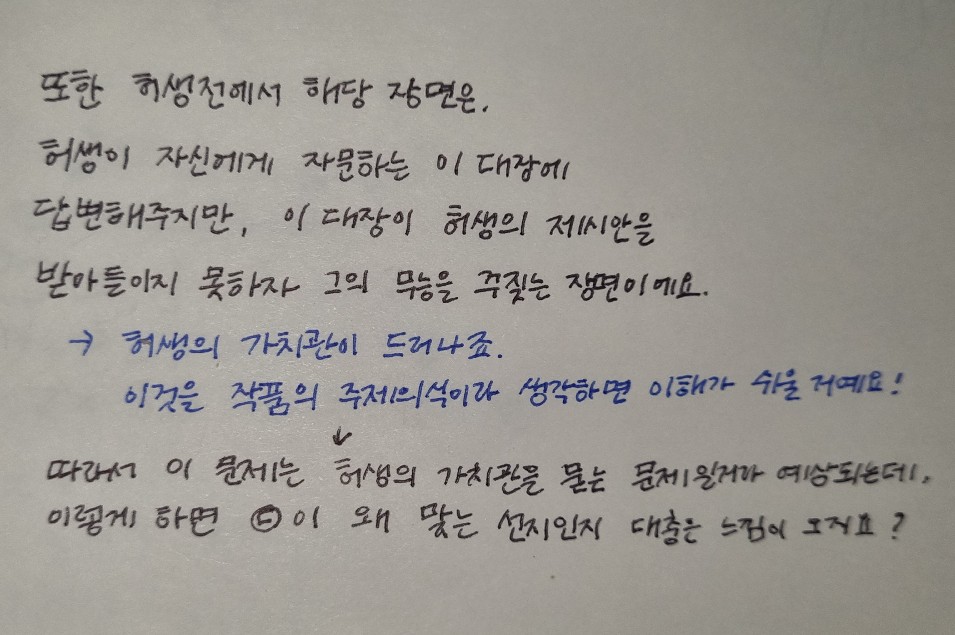 또한 허생전에서 해당 장면은,
허생이 자신에게 자문하는 이 대장에
답변해주지만, 이 대장이 허생의 제시안을
받아들이지 못하자 그의 무능을 꾸짖는 장면이에요.
→ 허생의 가치관이 드러나죠.
이것을 작품의 주제의식이라 생각하면 이해가 쉬울 거예요!
↓
따라서 이 문제는 허생의 가치관을 묻는 문제일거라 예상되는데,
이렇게 하면 ㉢이 왜 맞는 선지인지 대충은 느낌이 오지요?